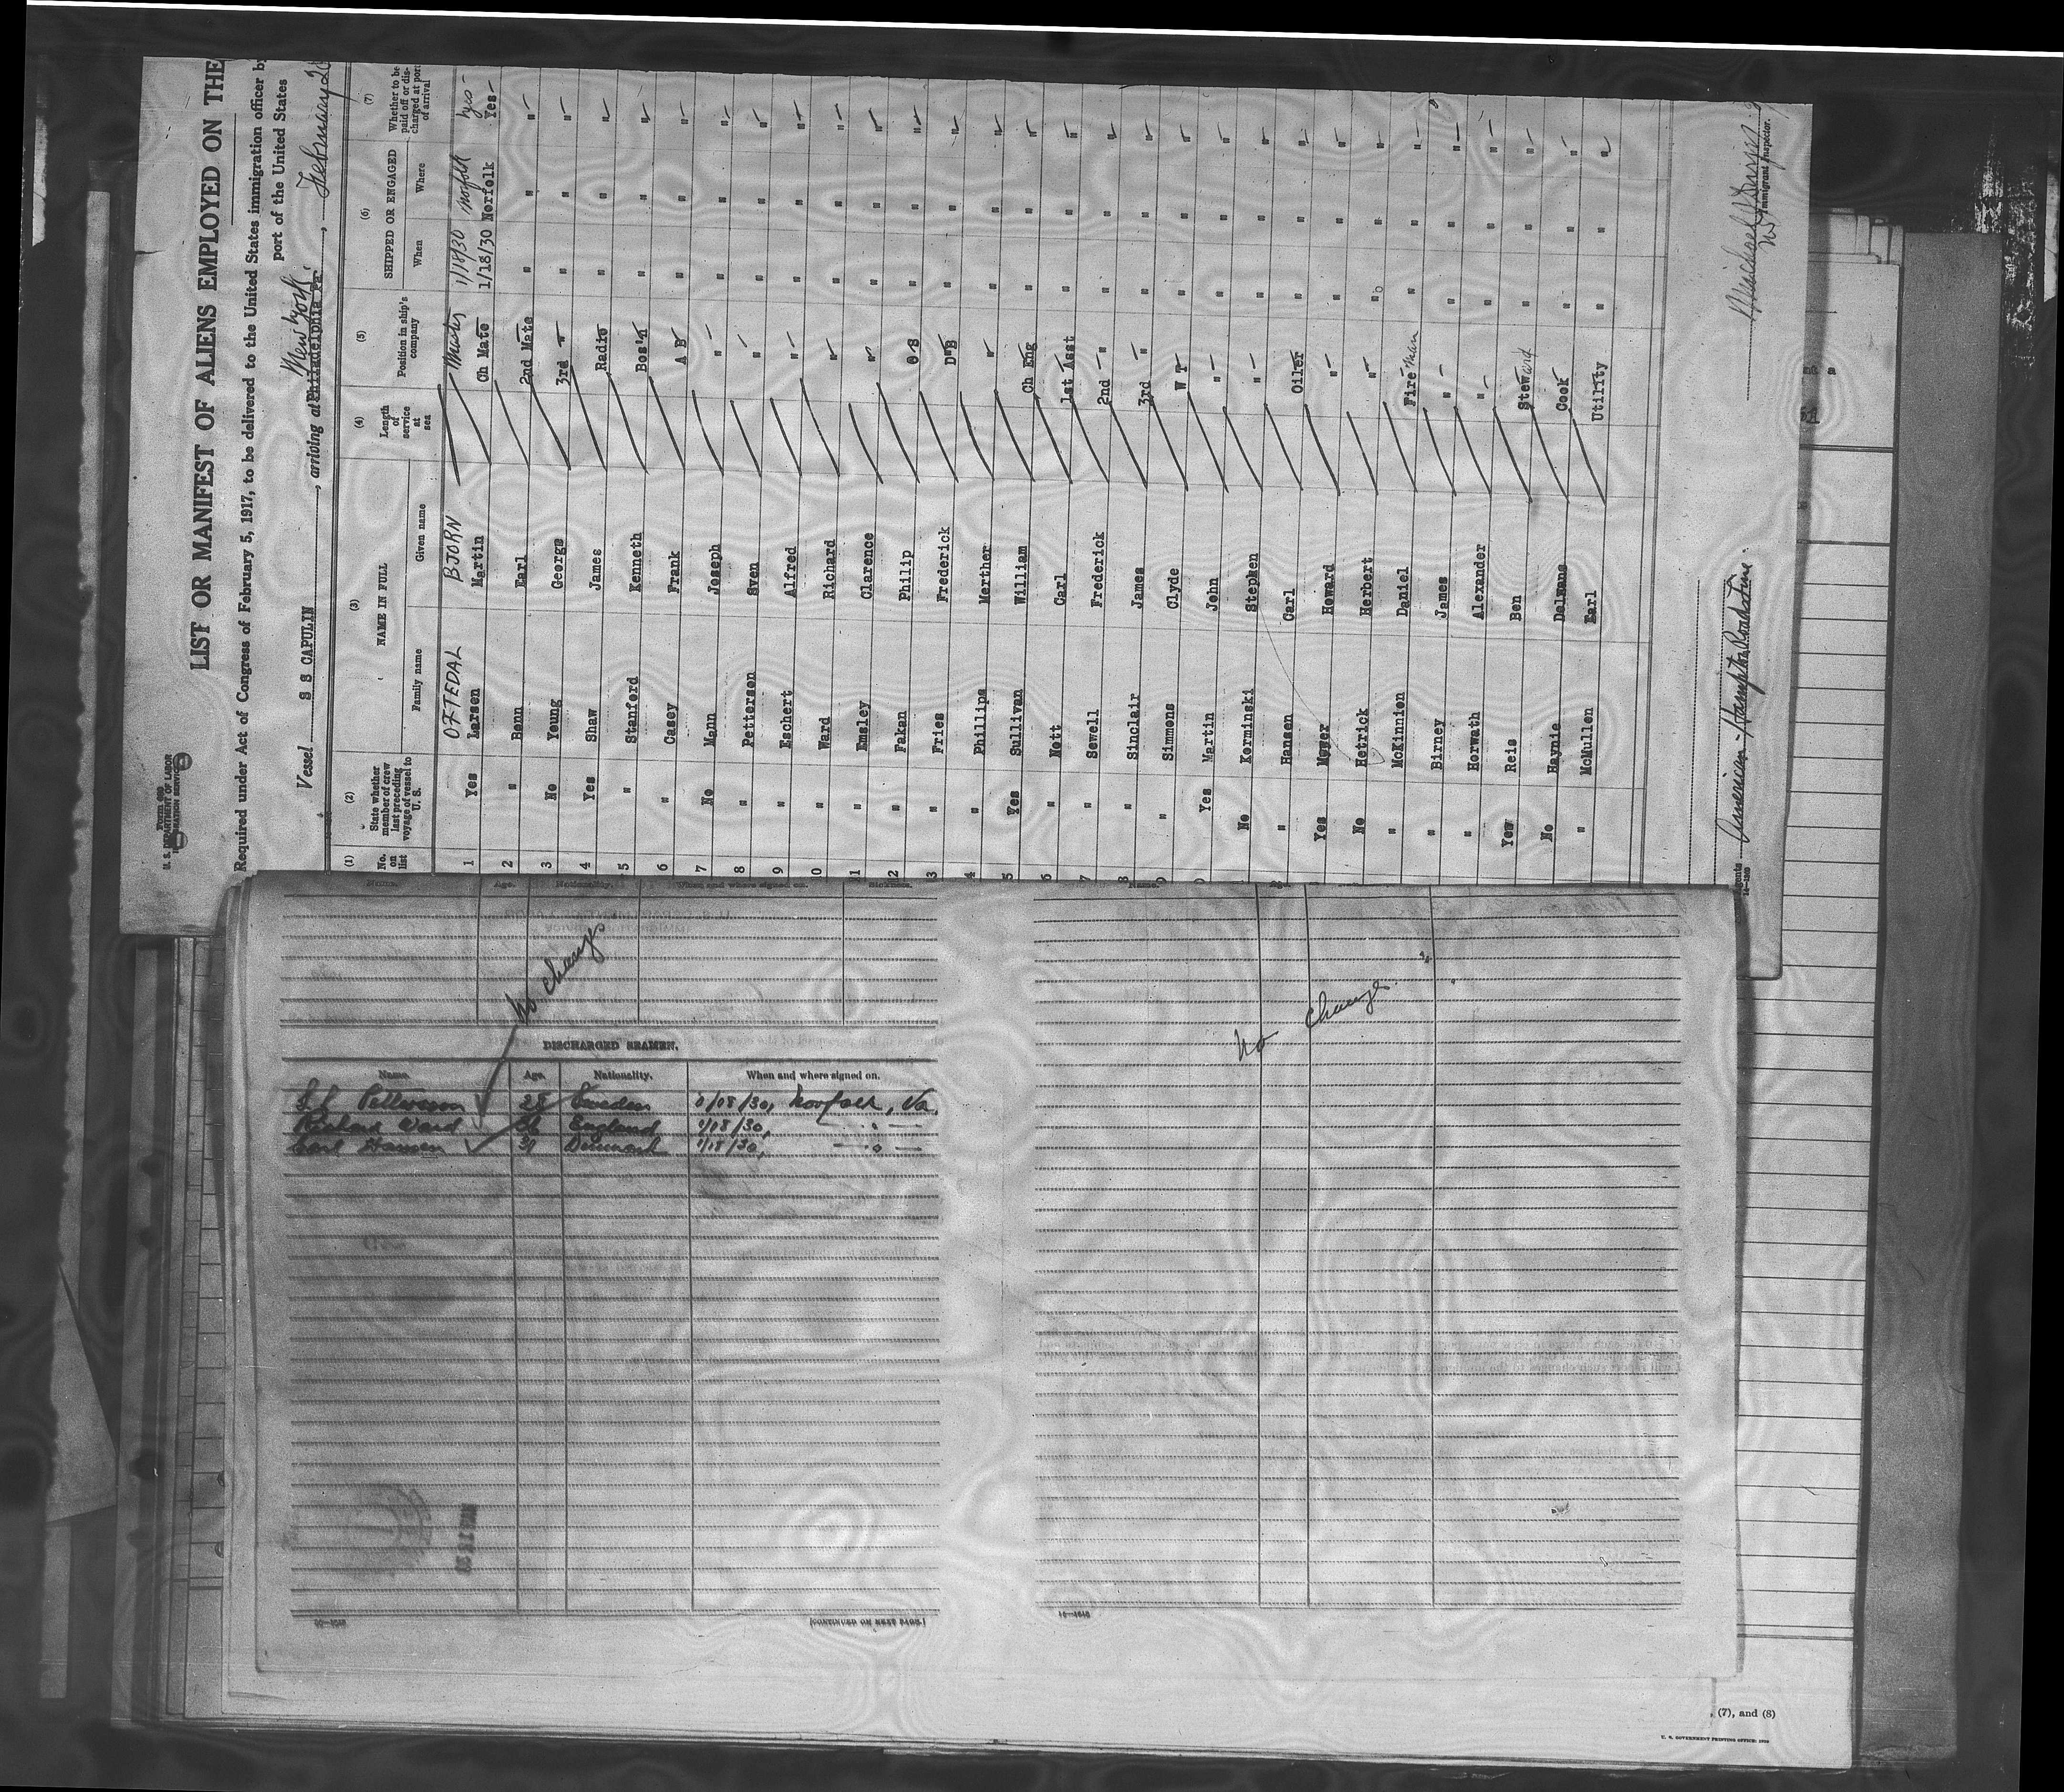 Form 689
U. S. DEPARTMENT OF LABOR
IMMIGRATION SERVICE
LIST OR MANIFEST OF ALIENS EMPLOYED ON THE
Required under Act of Congress of February 5, 1917, to be delivered to the United States immigration officer by
port of the United States
Vessel S S CAPULIN, arriving at Philadelphia Pa. New York, February 20
(1) (2) (3) (4) (5) (6) (7)
No. on list
State whether member of crew last preceding voyage of vessel to U. S.
NAME IN FULL
Family name Given name
Length of service at sea
Position in ship's company
SHIPPED OR ENGAGED
When Where
Whether to be paid off or discharged at port of arrival
OFTEDAL BJORN Master 1/18/30 Norfolk yes
1 Yes Larsen Martin Ch Mate 1/18/30 Norfolk Yes
2 " Benn Earl 2nd Mate " " "
3 No Young George 3rd " " " "
4 Yes Shaw James Radio " " "
5 " Stanford Kenneth Bos'n " " "
6 " Casey Frank A B " " "
7 No Mann Joseph " " " "
8 " Petterson Sven " " " "
9 " Eschert Alfred " " " "
10 " Ward Richard " " " "
11 " Emsley Clarence " " " "
12 " Fakan Philip O S " " "
3 " Fries Frederick D B " " "
4 " Phillips Merther " " " "
5 Yes Sullivan William Ch Eng " " "
6 " Nott Carl 1st Asst " " "
7 " Sewell Frederick 2nd " " " "
8 " Sinclair James 3rd " " " "
9 " Simmons Clyde W T " " "
0 Yes Martin John " " " "
No Kerminski Stephen " " " "
" Hansen Carl Oiler " " "
Yes Moyer Howard " " " "
No Hetrick Herbert " " " "
" McKinnion Daniel Fireman " " "
" Birney James " " " "
" Horwath Alexander " " " "
Yes Reis Ben Steward " " "
No Haynie Delmans Cook " " "
" McMullen Earl Utility " " "
Immigrant Inspector.
American - Hampton Roads Line.
14—1869
Name. Age. Nationality. When and where signed on. Sickness.
No change
DISCHARGED SEAMEN.
Name. Age. Nationality. When and where signed on.
Petterson 28 Sweden 1/18/30, Norfolk, Va.
Richard Ward England 1/18/30,
Carl Hansen 31 Denmark 1/18/30,
(CONTINUED ON NEXT PAGE.)
Name.
No change
, (7), and (8)
U. S. GOVERNMENT PRINTING OFFICE: 1929